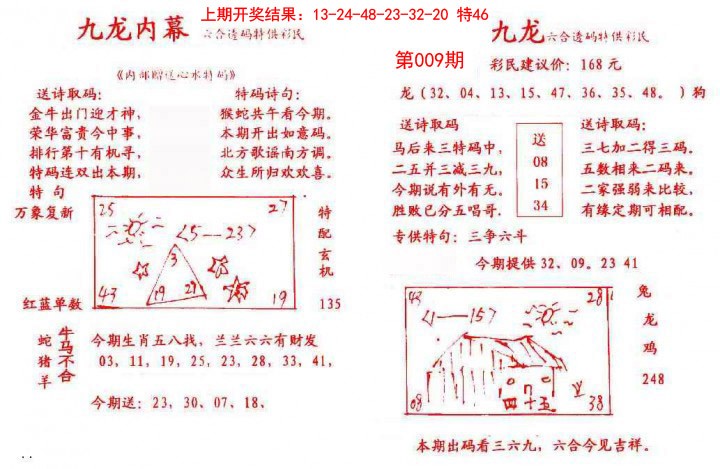 上期开奖结果：13-24-48-23-32-20 特46
九龙内幕 六合透码特供彩民
《内部赠送心水特码》
送诗取码：
金牛出门迎才神，
荣华富贵今中事，
排行第十有机寻，
特码连双出本期，
特码诗句：
猴蛇共午看今期。
本期开出如意码。
北方歌谣南方调。
众生所归欢欢喜。
特 句
万象复新
红蓝单数
25
27
<5—23>
3
19
29
43
19
特
配
玄
机
135
蛇
猪
羊
牛
马
不
合
今期生肖五八找，兰兰六六有财发
03，11，19，25，23，28，33，41，
今期送：23，30、07、18、
九龙 六合透码特供彩民
第009期
彩民建议价：168 元
龙（32、04、13、15、47、36、35、48。）狗
送诗取码
马后来三特码中，
二五并三减三九，
今期说有外有无。
胜败已分五唱哥.
送
08
15
34
送诗取码：
三七加二得三码。
五数相来二码来。
二家强弱来比较，
有缘定期可相配。
专供特句：三争六斗
今期提供 32、09。23 41
43
28
<1—15>
四十五
08
38
兔
龙
鸡
248
本期出码看三六九，六合今见吉祥。